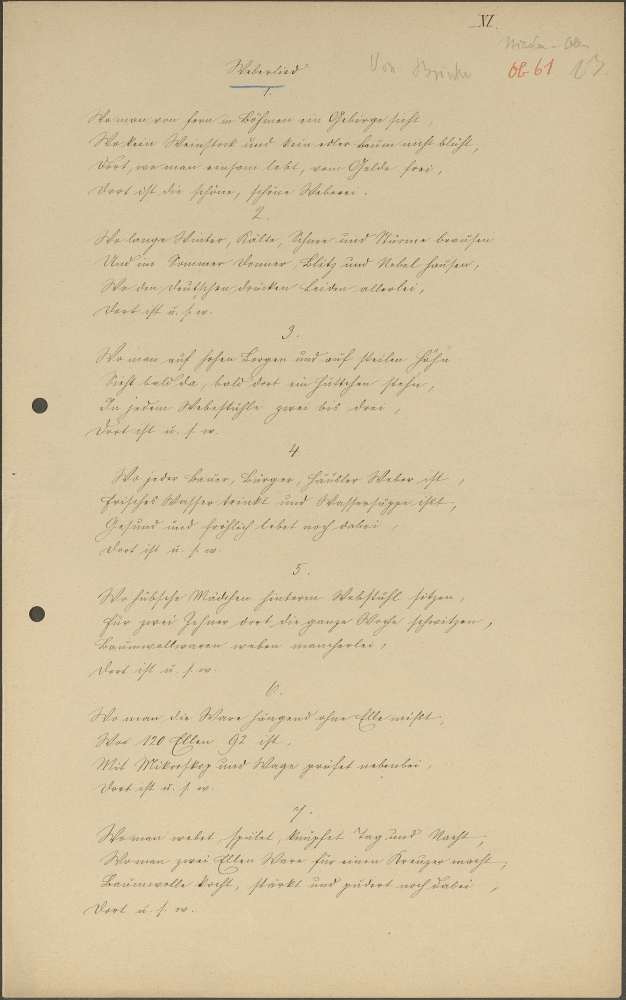 XI.
Nieder-
Von
ob 61 13.
Weberlied
1.
Wo man von fern in Böhmen ein Gebirge sieht,
Wo kein Weinstock und kein edler Baum nicht blüht,
Dort, wo man einsam lebt, vom Gelde frei,
Dort ist die schöne, schöne Weberei.
2.
Wo lange Winter, Kälte, Schnee und Stürme brausen
Und im Sommer Donner, Blitz und Nebel hausen,
Wo den Deutschen drücken Leiden allerlei,
Dort ist u. s. w.
3.
Wo man auf hohen Bergen und auf steilen Höhn
Sieht bald da, bald dort ein Hüttchen stehn,
In jedem Webestühle zwei bis drei,
Dort ist u. s. w.
4
Wo jeder Bauer, Bürger, Häusler Weber ist,
Frisches Wasser trinkt und Wassersuppe ißt,
Gesund und fröhlich lebet noch dabei,
Dort ist u. s. w.
5.
Wo hübsche Mädchen hinterm Webstuhl sitzen,
Für zwei Zehner dort die ganze Woche schwitzen,
Baumwollwaren weben mancherlei,
Dort ist u. s. w.
6.
Wo man die Ware hängend ohne Elle mißt,
Wo 120 Ellen 92 ist,
Mit Mikroskop und Wage prüfet nebenbei,
Dort ist u. s. w.
7.
Wo man webet, spulet, knüpfet Tag und Nacht,
Wo man zwei Ellen Ware für einen Kreuzer macht,
Baumwolle kocht, stärkt und pudert noch dabei,
Dort u. s. w.